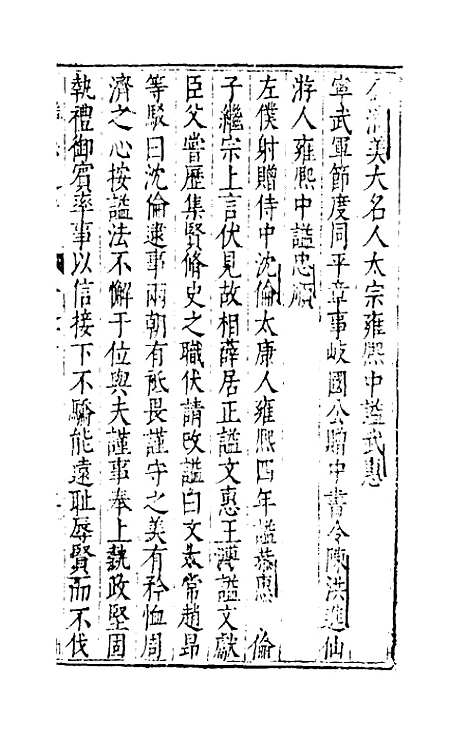 美大名人太宗雍熙中諡武惠
寧武軍節度同平章事岐國公贈中書令陳洪進仙
游人雍熙中諡忠順
左僕射贈侍中沈倫太康人雍熙四年諡恭惠　倫
子繼宗上言伏見故相薛居正諡文惠王溥諡文獻
臣父嘗歷集賢脩史之職伏請改諡曰文太常趙昂
等駁曰沈倫逮事兩朝有祗畏謹守之美有矜恤周
濟之心按諡法不懈于位與夫謹事奉上執政堅固
執禮御賓率事以信接下不驕能遠耻辱賢而不伐